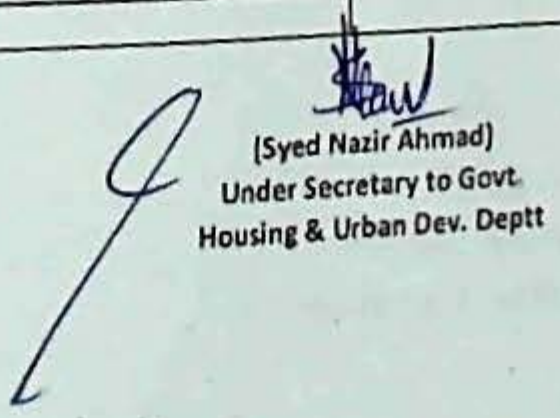 (Syed Nazir Ahmad)
Under Secretary to Govt.
Housing & Urban Dev. Deptt